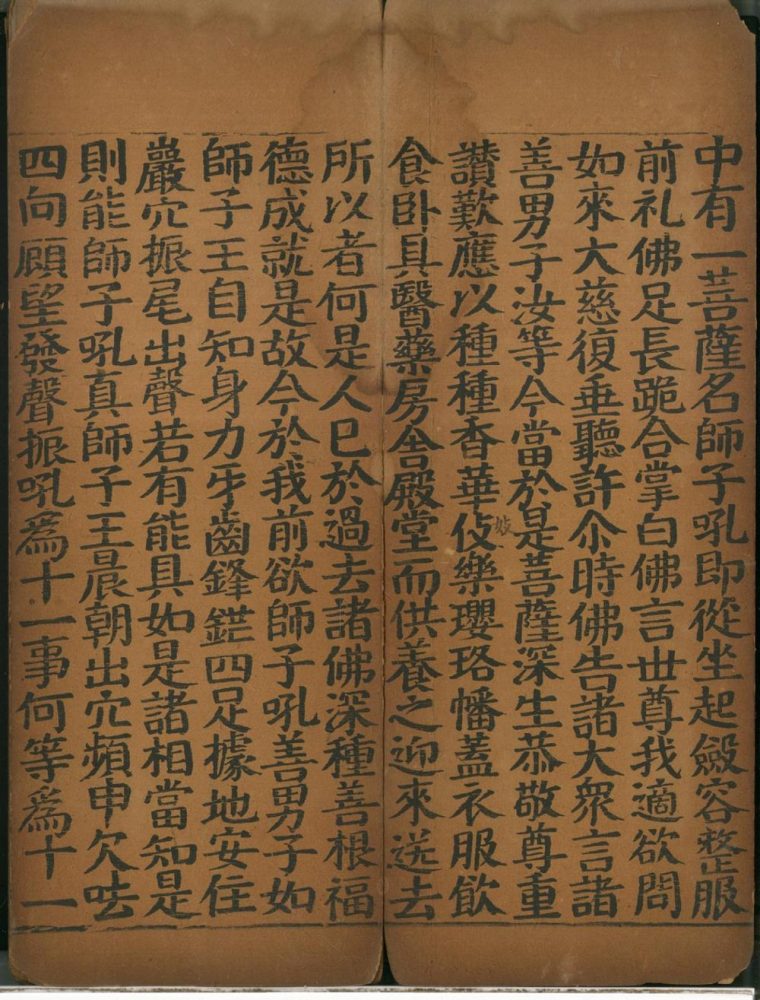 中有一菩薩名師子吼即從坐起斂容整服
前礼佛足長跪合掌白佛言世尊我適欲問
如來大慈復垂聽許尒時佛告諸大衆言諸
善男子汝等今當於是菩薩深生恭敬尊重
讚歎應以種種香華伎樂瓔珞幡蓋衣服飲
食卧具醫藥房舍殿堂而供養之迎來送去
所以者何是人已於過去諸佛深種善根福
德成就是故今於我前欲師子吼善男子如
師子王自知身力牙齒鋒鋩四足據地安住
巖穴振尾出聲若有能具如是諸相當知是
則能師子吼真師子王晨朝出穴頻申欠呿
四向顧望發聲振吼爲十一事何等爲十一